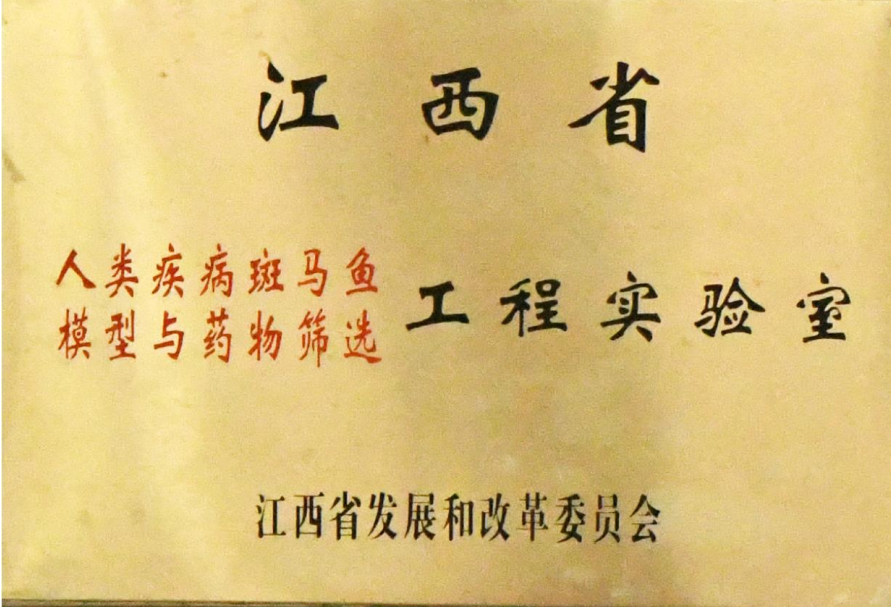 江西省
人类疾病斑马鱼
模型与药物筛选
工程实验室
江西省发展和改革委员会